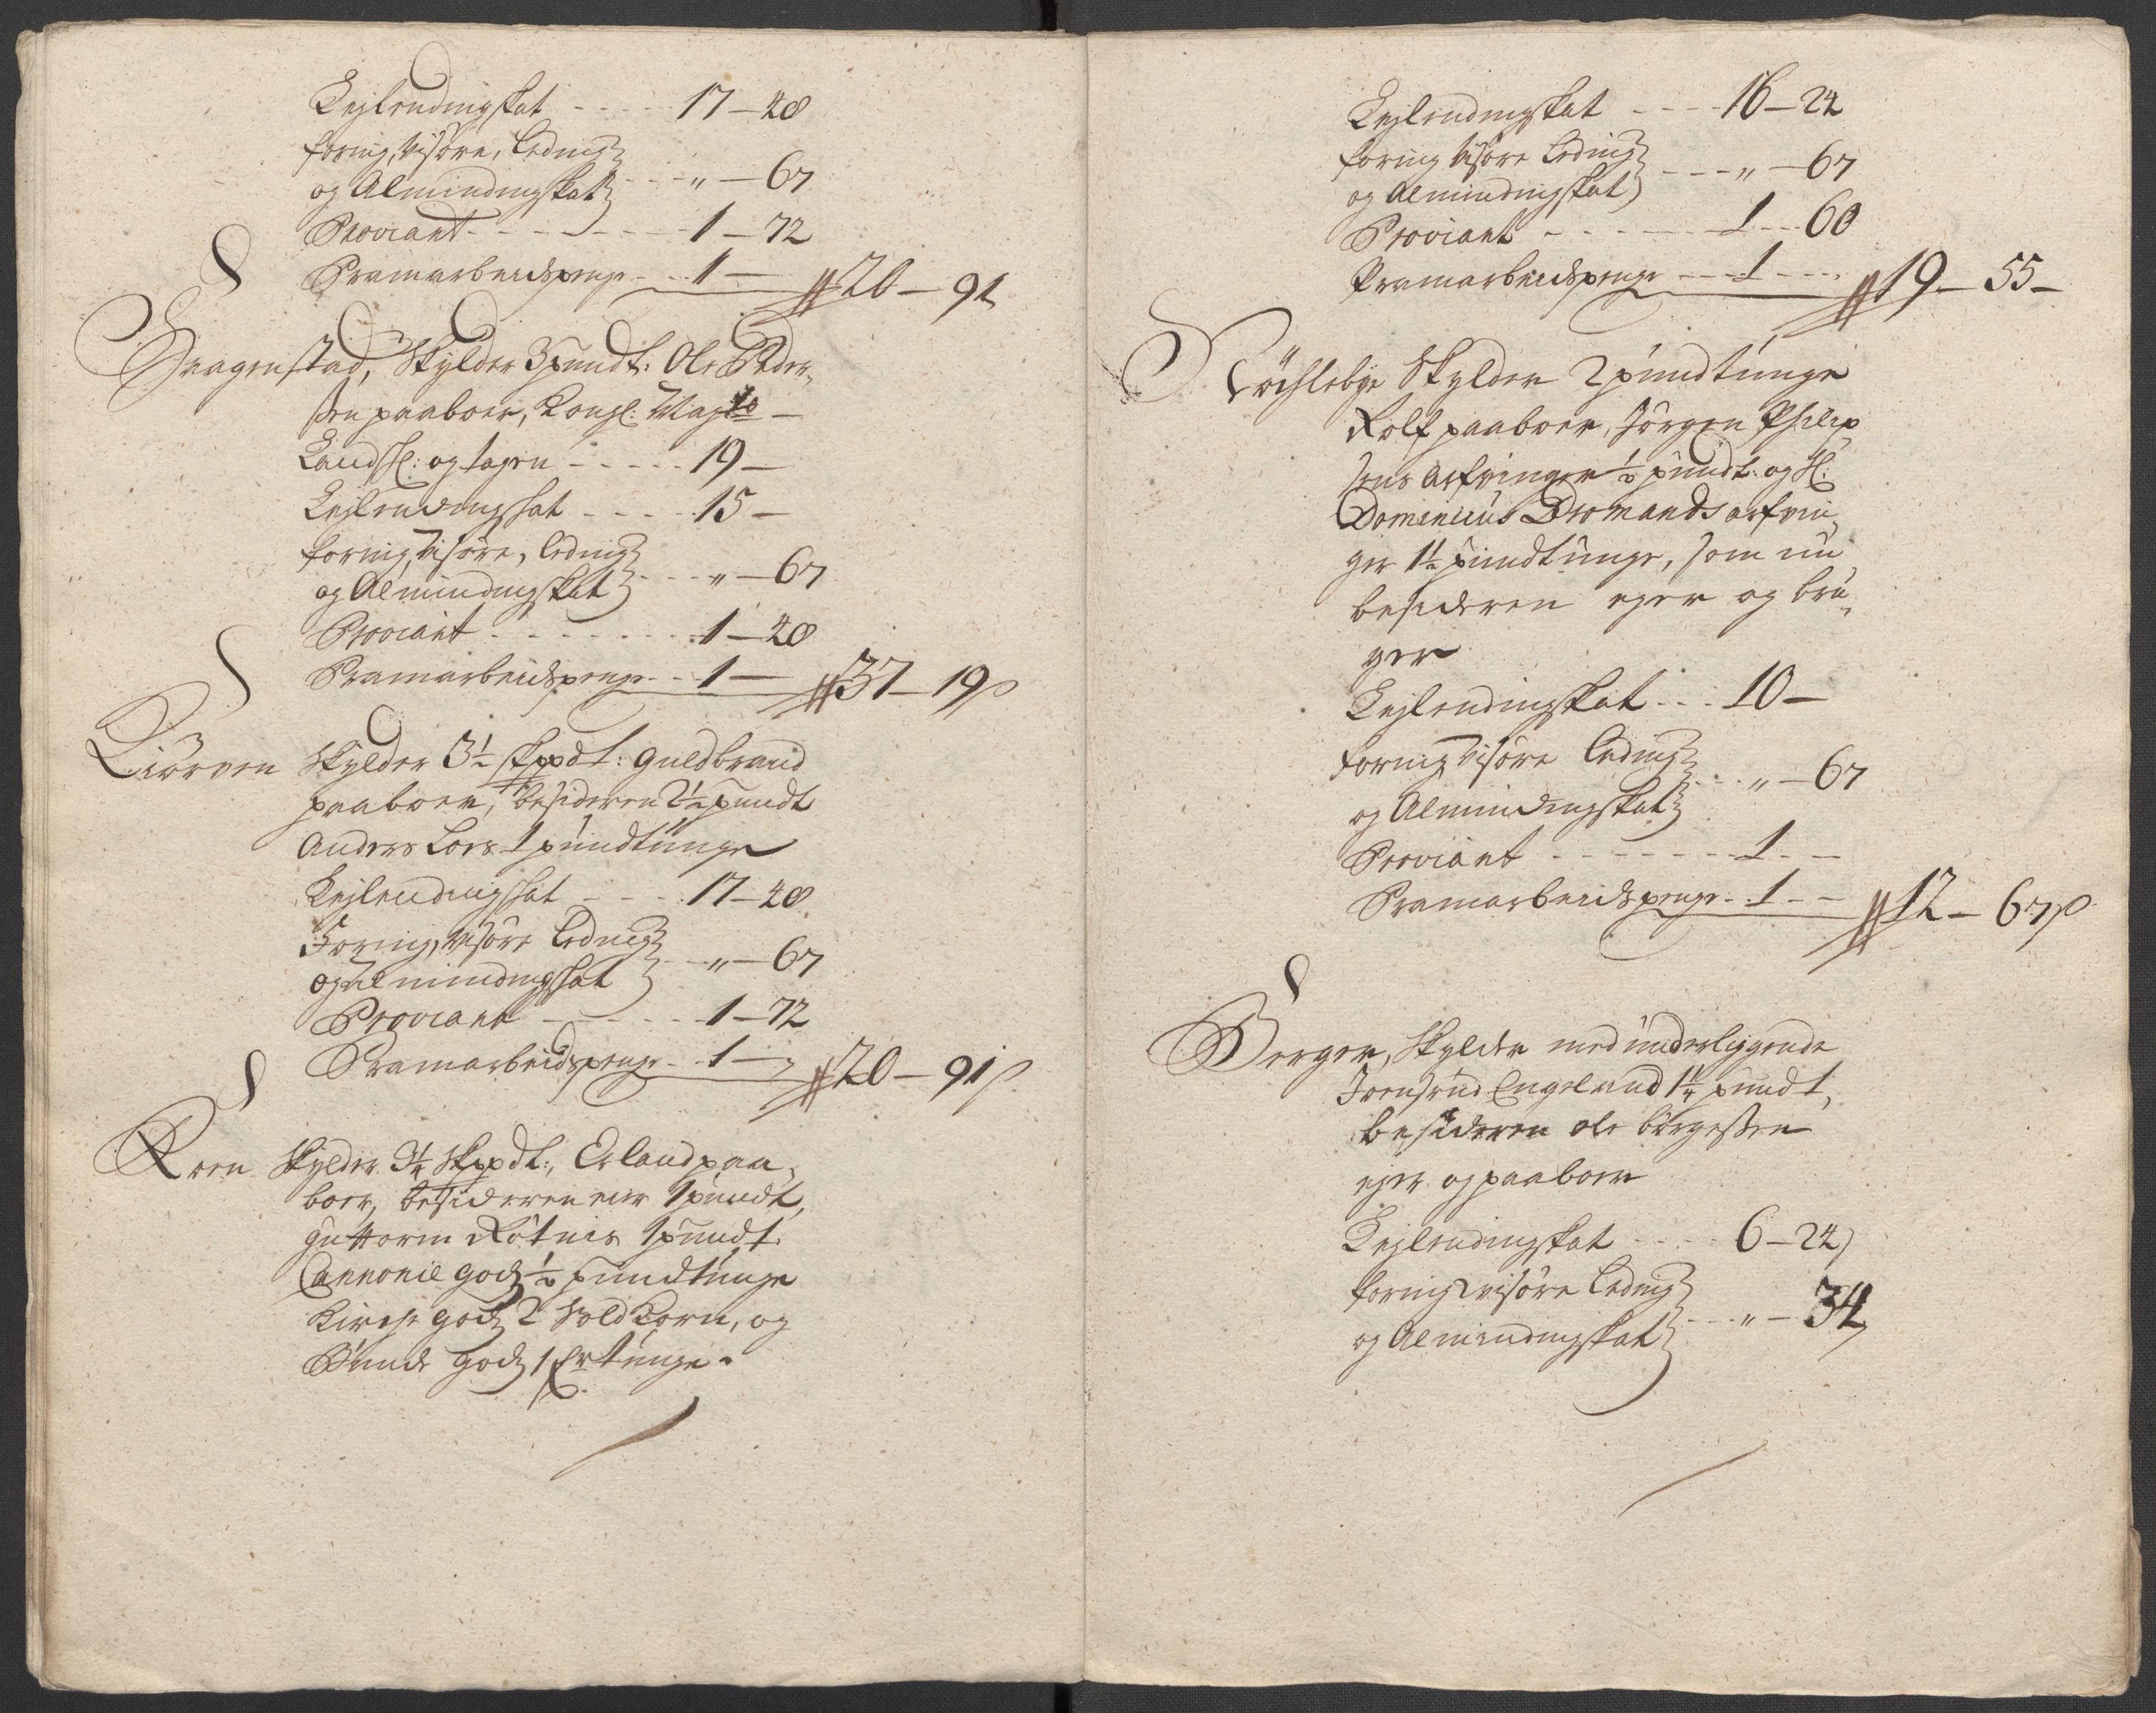 Lejlendingskat - - - - - 17 - 48
foring, visøre, leding
og Almindingskat - - - " - 67
Proviant - - - - - - 1 - 72
Pramarbeidspenge - - 1 - 20 - 91
Haagenstad, Skylder 3 pundt: Ole Peder-
sen paaboer, Kongl: Mayts
Landsk: og tagen - - - - - 19 -
Lejlendingskat - - - - 15 -
foring, visøre, leding
og Almindingskat - - - " - 67
Proviant - - - - - - - 1 - 48
Pramarbeidspenge - - 1 - 37 - 19
Kiørven Skylder 3½ skppdt: Guldbrand
paaboer, besidderen 2½ pundt
Anders Loes 1 pundtunge
Lejlendingskat - - - 17 - 48
Foring, visøre leding
og Almindingskat - - " - 67
Proviant - - - - - - 1 - 72
Pramarbeidspenge - - 1 - 20 - 91
Roen Skylder 3¼ Skppdt:, Erland paa-
boer, besidderen eier 1 pundt,
Guttorm Røtnis 1 pundt.
Cannonie godz ½ pundtunge
Kirche godz 2 Sold korn, og
Bunde godz 1 fertunge.
Lejlendingskat - - - - 16 - 24
foring visøre leding
og Almindingskat - - - " - 67
Proviant - - - - - - 1 - - 60
Pramarbeidspenge - - - 1 - - - 19 - 55 -
Skylder 2 pundtunge
Rolf paaboer, Jørgen Philip-
sens Arfvinger ½ pundt: og Sl:
Dominicus Dromands arfvin-
ger 1½ pundtunge, som nu
besidderen eger og bru-
ger
Lejlendingskat - - - 10 -
foring visøre leding
og Almindingskat - - - " - 67
Proviant - - - - - - - 1 - -
Pramarbeidspenge - - 1 - - 12 - 67
Berger, Skylder med underliggende
Engeland 1¼ pundt,
besidderen ole børgessen
ejer og paaboer
Lejlendingskat - - - - 6 - 24
foring visøre leding
og Almindingskat - - - " - 34